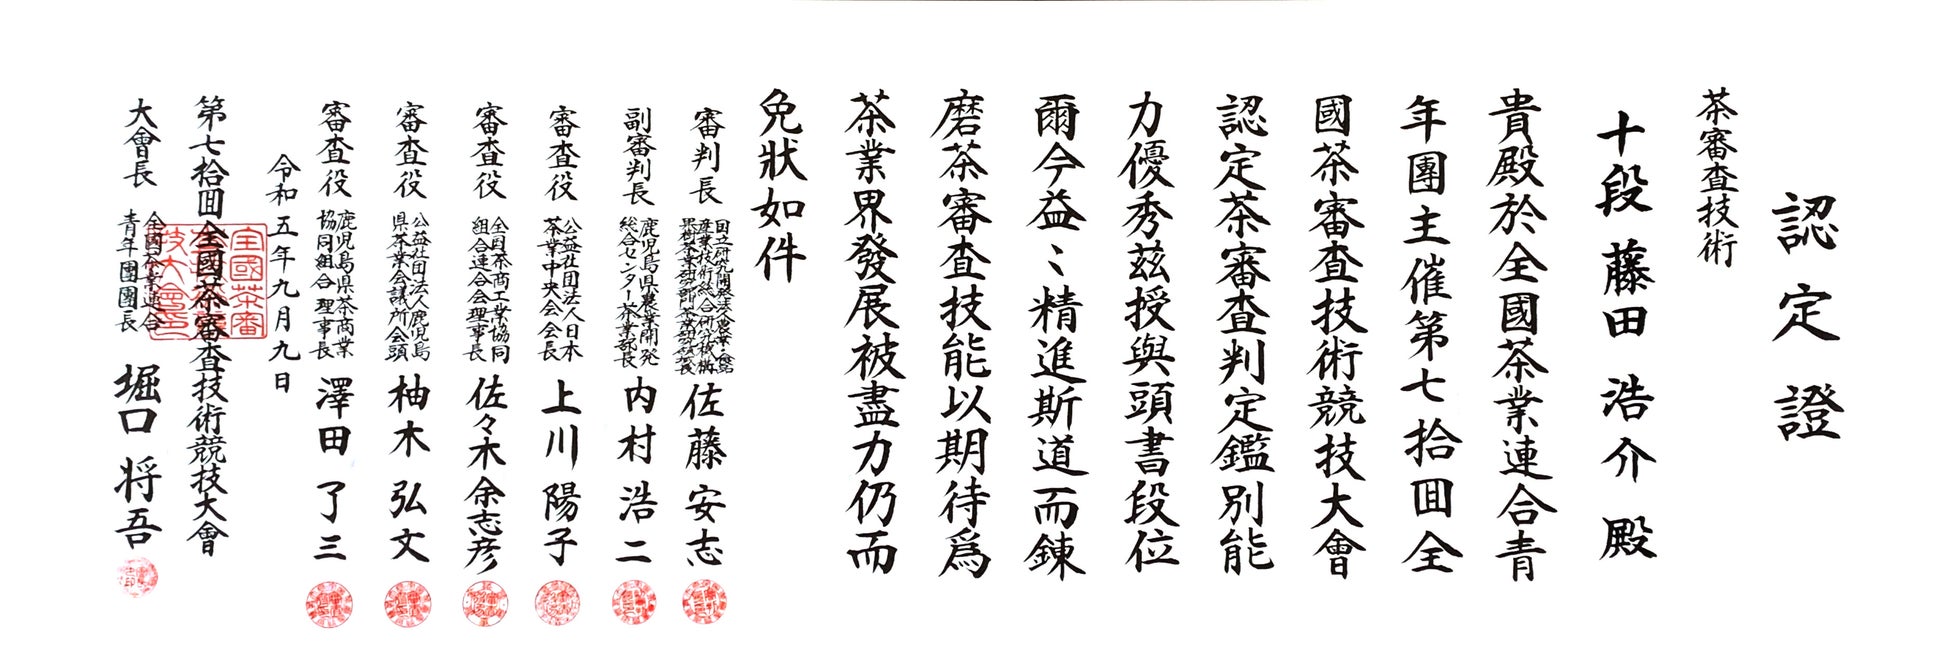 認定證
茶審査技術
十段 藤田 浩介 殿
貴殿於全國茶業連合青
年團主催第七拾回全
國茶審査技術競技大會
認定茶審査判定鑑別能
力優秀茲授與頭書段位
爾今益〻精進斯道而錬
磨茶審査技能以期待爲
茶業界發展被盡力仍而
免狀如件
審判長
佐藤 安志
副審判長
鹿児島県農業開発
総合センター茶業部長
内村 浩二
審査役
公益社団法人日本
茶業中央会会長
上川 陽子
審査役
全国茶商工業協同
組合連合会理事長
佐々木 余志彦
審査役
公益社団法人鹿児島
県茶業会議所会頭
柚木 弘文
審査役
鹿児島県茶商業
協同組合 理事長
澤田 了三
令和五年九月九日
第七拾回全國茶審査技術競技大會
大會長
全國茶業連合
青年團團長
堀口 将吾